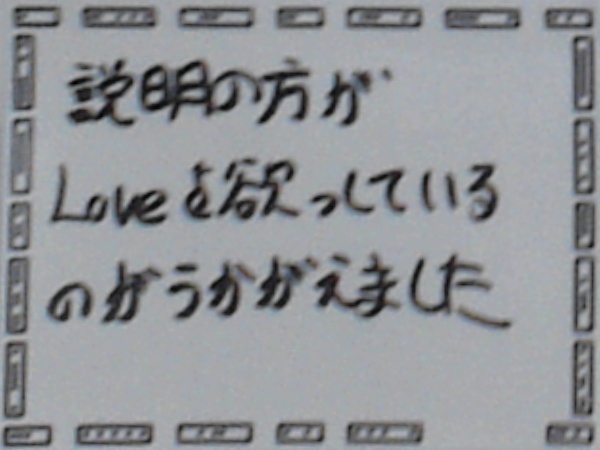 説明の方が
Loveを欲っしている
のがうかがえました